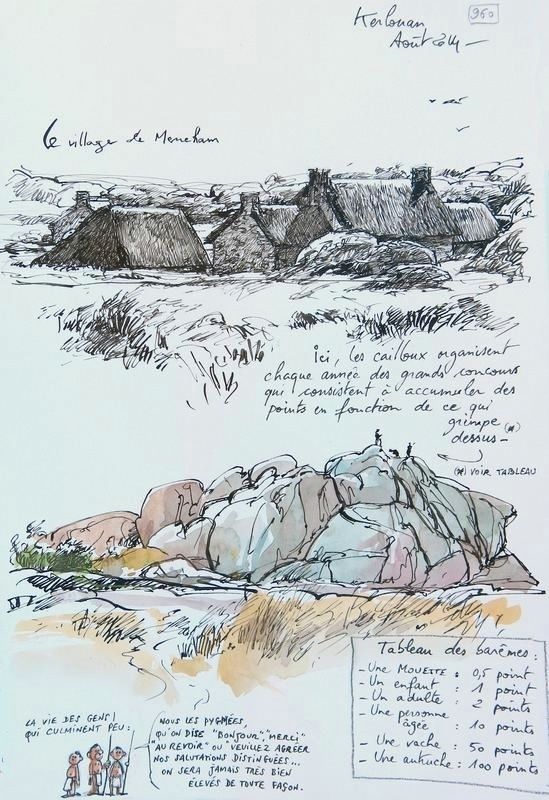 Kerlouan
960
Août 2014 -
Le village de Meneham
ici, les cailloux organisent
chaque année des grands concours
qui consistent à accumuler des
points en fonction de ce qui
grimpe (*)
dessus -
(*) VOIR TABLEAU
Tableau des barèmes :
- Une MOUETTE : 0,5 point
- Un enfant : 1 point
- Un adulte : 2 points
- Une personne
âgée : 10 points
- Une vache : 50 points
- Une autruche : 100 points
LA VIE DES GENS
QUI CULMINENT PEU :
NOUS LES PYGMÉES,
QU'ON DISE "BONJOUR", "MERCI",
"AU REVOIR" OU "VEUILLEZ AGRÉER
NOS SALUTATIONS DISTINGUÉES"...
ON SERA JAMAIS TRÈS BIEN
ÉLEVÉS DE TOUTE FAÇON.